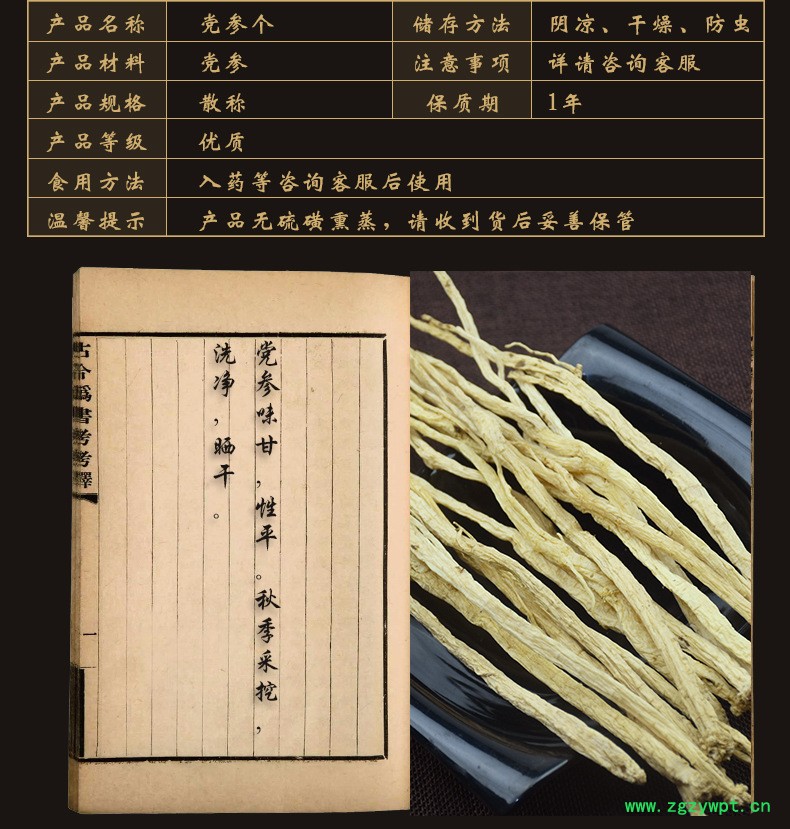 产品名称 党参个 储存方法 阴凉、干燥、防虫
产品材料 党参 注意事项 详请咨询客服
产品规格 散称 保质期 1年
产品等级 优质
食用方法 入药等咨询客服后使用
温馨提示 产品无硫磺熏蒸，请收到货后妥善保管
党参味甘，性平。秋季采挖，
洗净，晒干。
古今偽書考考釋
一
www.zgzywpt.cn